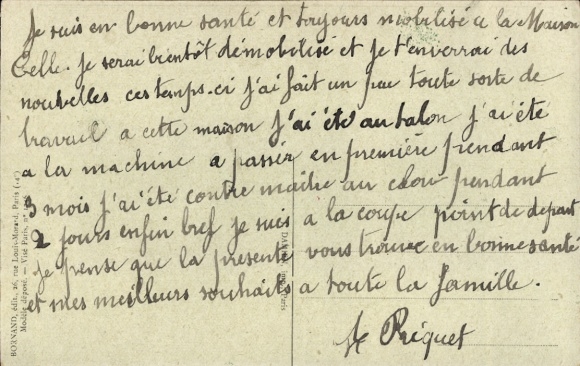 Je suis en bonne santé et toujours mobilisé a la Maison
Celle. Je serai bientôt démobilisé et je t'enverrai des
nouvelles ces temps-ci j'ai fait un peu toute sorte de
travail a cette maison j'ai été au talon j'ai été
a la machine a passer en première pendant
3 mois j'ai été contre maître au clou pendant
2 jours enfin bref je suis à la coupe point de depart
je pense que la presente vous trouve en bonne santé
et mes meilleurs souhaits a toute la famille.
Priquet
BORNAND, édit., 26, rue Louis-Morard, Paris (14e)
Modèle déposé. — Visé Paris, n°
Paris